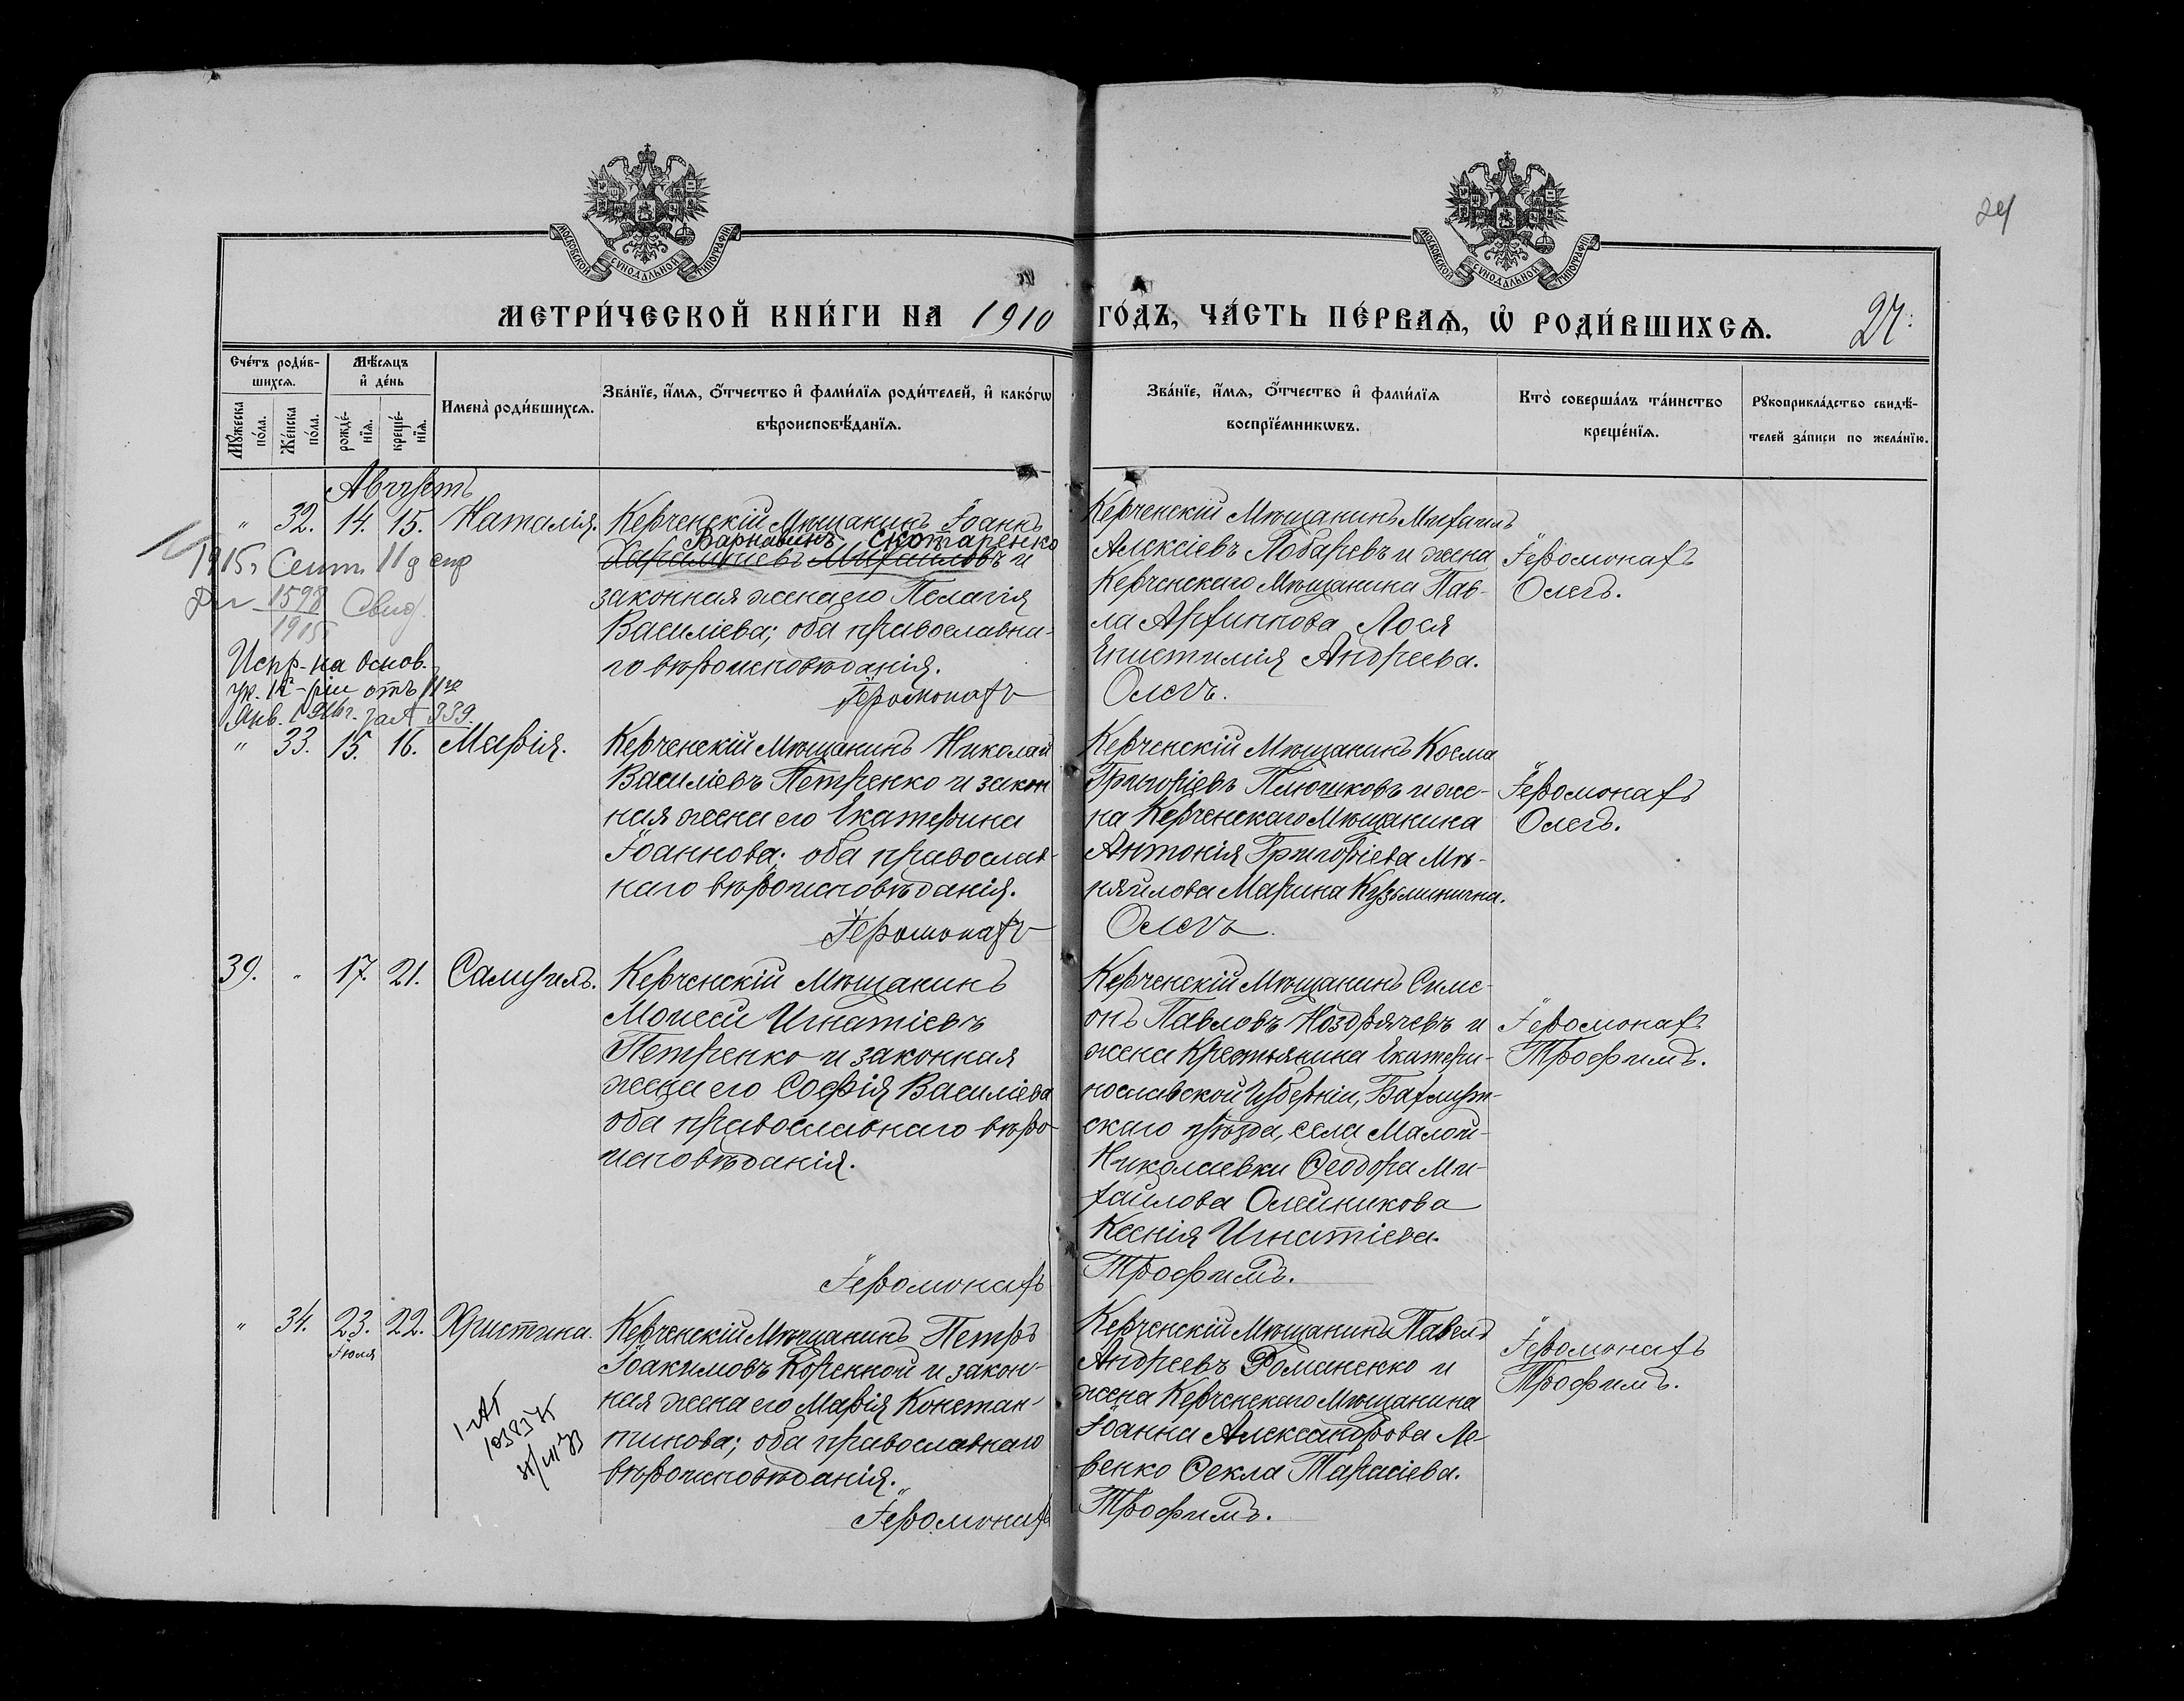 24
МОСКОВСКОЙ СѴНОДАЛЬНОЙ ТИПОГРАФІИ
МОСКОВСКОЙ СѴНОДАЛЬНОЙ ТИПОГРАФІИ
МЕТРИ́ЧЕСКОЙ КНИ́ГИ НА 1910 ГО́ДЪ, ЧА́СТЬ ПЕ́РВАѦ, Ѡ҆ РОДИ́ВШИХСѦ. 24.
Сче́тъ роди́в-
шихсѧ.
Мꙋ́жеска
по́ла.
Же́нска
по́ла.
Мѣ́сѧцъ
и҆ де́нь
рожде́-
нїѧ.
креще́-
нїѧ.
Имена̀ роди́вшихсѧ.
Зва́нїе, и҆́мѧ, о҆́тчество и҆ фами́лїѧ роди́телей, и҆ како́гѡ
вѣроисповѣ́данїѧ.
Зва́нїе, и҆́мѧ, о҆́тчество и҆ фами́лїѧ
воспрїе́мникѡвъ.
Кто̀ соверша́лъ та́инство
креще́нїѧ.
Рꙋкоприкла́дство свидѣ́-
телей за́писи по жела́нїю.
Августъ
" 32. 14. 15. Наталія.
Керченскій Мѣщанинъ Іоаннъ
Варнавинъ Скотаренко
Харалампіевъ Михайловъ и
законная жена его Пелагія
Василіева; оба православна-
го вѣроисповѣданія.
Іеромонахъ
Керченскій Мѣщанинъ Михаилъ
Алексіевъ Лобаревъ и жена
Керченскаго Мѣщанина Пав-
ла Архиппова Лося
Епистимія Андреева.
Олегъ.
Іеромонахъ
Олегъ.
1915 г. Сент. 11 д
1598
1915
Свид.
Испр. на основ.
ук. К-ріи отъ 11го
Янв. за № 339.
" 33. 15. 16. Марія.
Керченскій Мѣщанинъ Николай
Василіевъ Петренко и закон
ная жена его Екатерина
Іоаннова; оба православ-
наго вѣроисповѣданія.
Іеромонахъ
Керченскій Мѣщанинъ Косма
Григоріевъ Плюшиковъ и же-
на Керченскаго Мѣщанина
Антонія Григоріева Мѣ-
няйлова Марина Кузьминична.
Олегъ.
Іеромонахъ
Олегъ.
39. " 17. 21. Самуилъ.
Керченскій Мѣщанинъ
Моисей Игнатіевъ
Петренко и законная
жена его Софія Василіева
оба православнаго вѣро-
исповѣданія.
Іеромонахъ
Керченскій Мѣщанинъ Симе-
онъ Павловъ Ноздрячевъ и
жена Крестьянина Екатери-
нославской Губерніи, Бахмут-
скаго уѣзда, села Малой-
Николаевки Ѳеодора Ми-
хаилова Олейникова
Ксенія Игнатіева.
Трофимъ.
Іеромонахъ
Трофимъ.
" 34. 23. 22. Христина.
Іюля
Керченскій Мѣщанинъ Петръ
Іоакимовъ Коренной и закон-
ная жена его Марія Констан-
тинова; оба православнаго
вѣроисповѣданія.
Іеромонахъ
Керченскій Мѣщанинъ Павелъ
Андреевъ Романенко и
жена Керченскаго Мѣщанина
Іоанна Александрова Ле-
венко Ѳекла Тарасіева.
Трофимъ.
Іеромонахъ
Трофимъ.